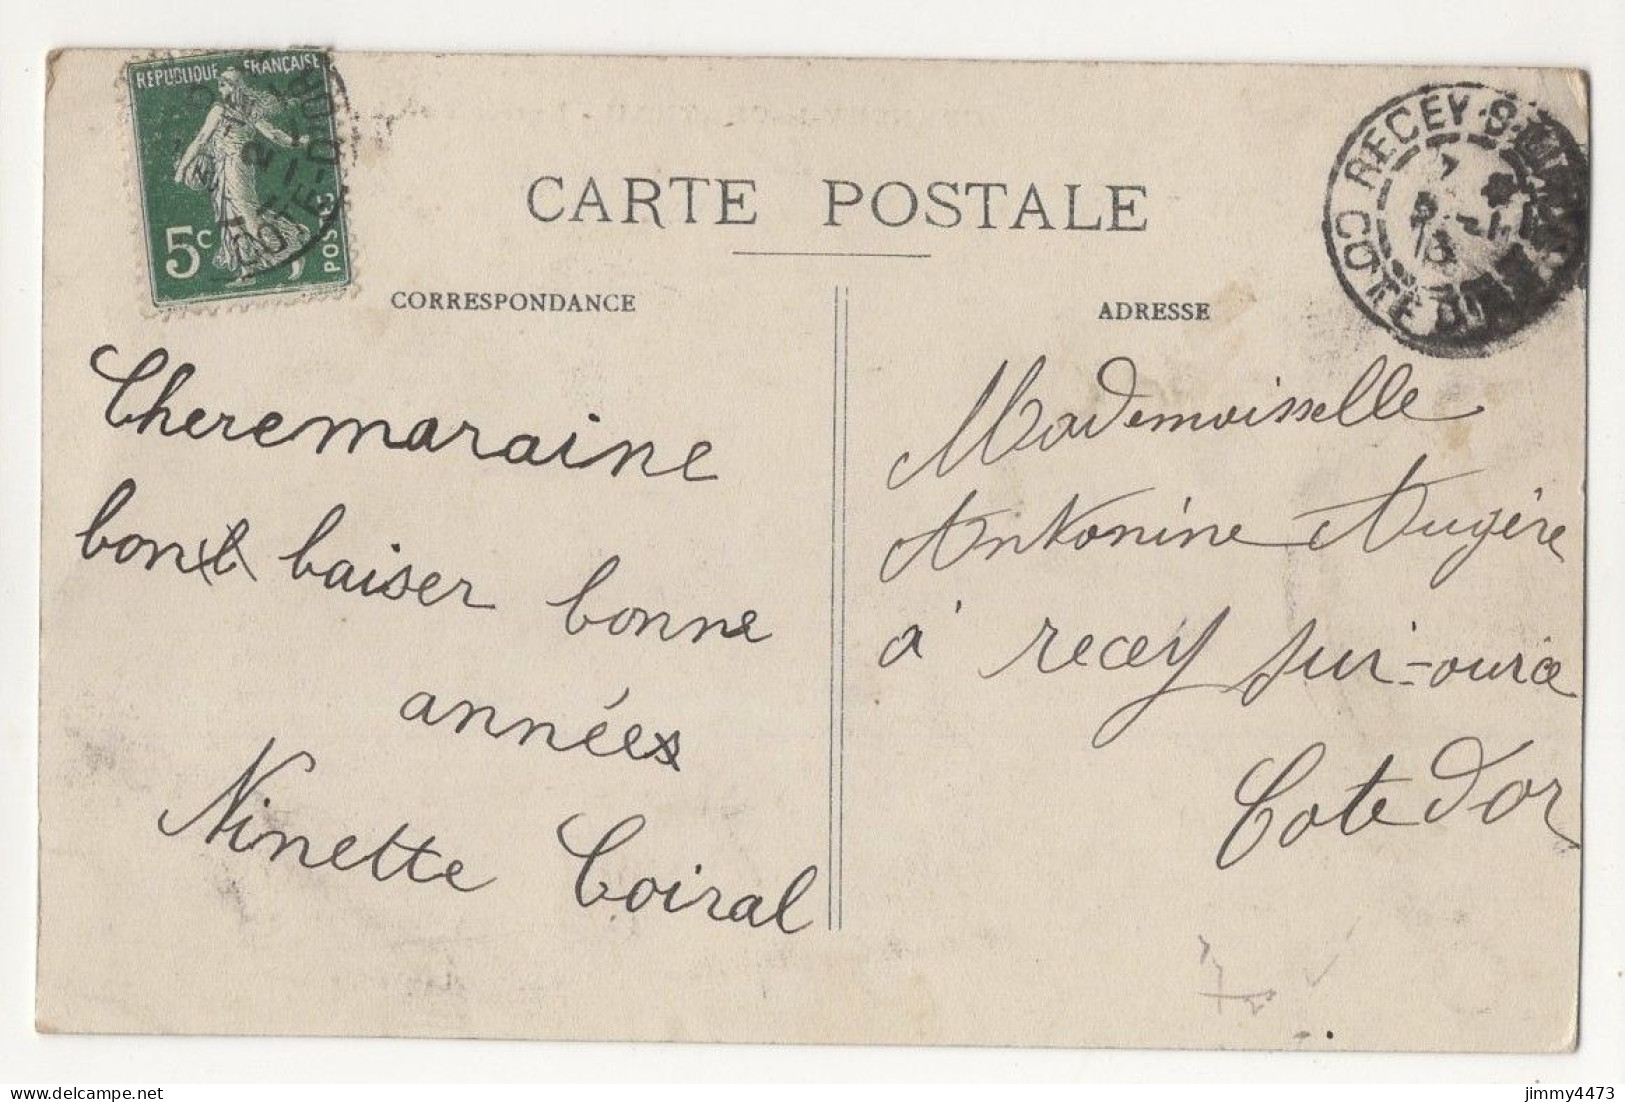 REPUBLIQUE FRANÇAISE
5c
POSTES
CÔTE-D'OR
RECEY-S-
COTE D'OR
CARTE POSTALE
CORRESPONDANCE
ADRESSE
Chere maraine
bon baiser bonne
année
Ninette Coiral
Mademoisselle
Antonine Augère
à recey sur-ource
Cote d'or
jimmy4473